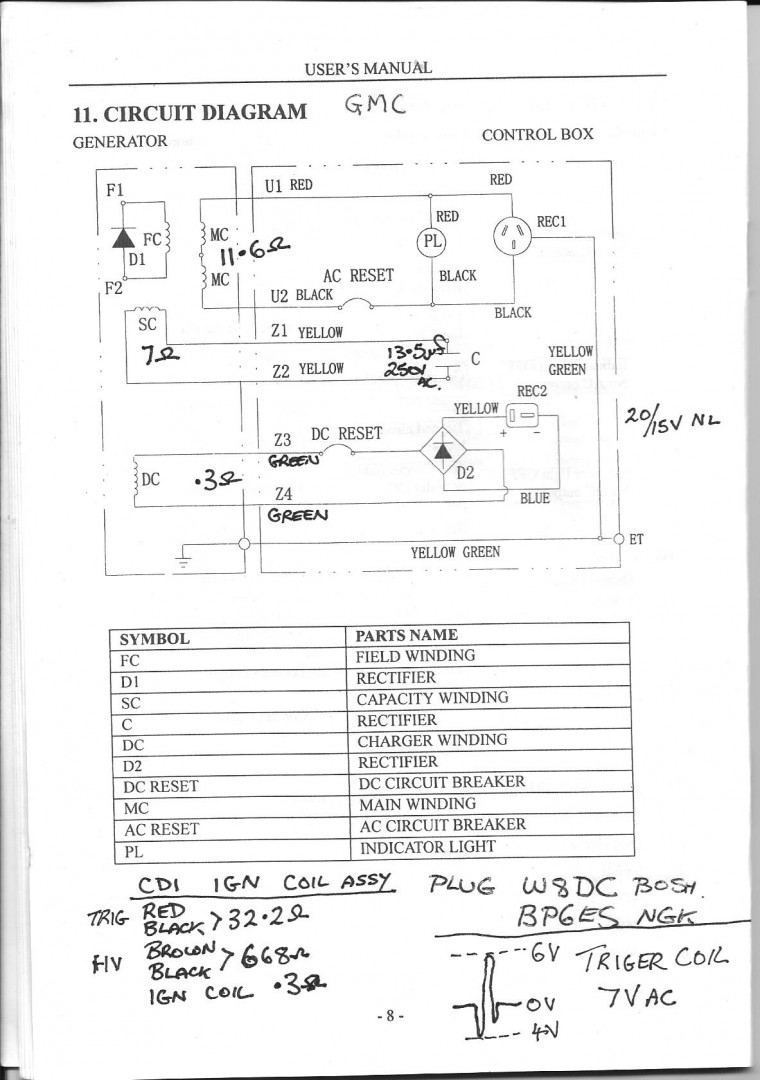 USER'S MANUAL
11. CIRCUIT DIAGRAM GMC
GENERATOR CONTROL BOX
F1 U1 RED RED
RED REC1
FC MC PL
D1 11.6Ω
MC AC RESET BLACK
F2 U2 BLACK
BLACK
SC Z1 YELLOW
7Ω 13.5µf C YELLOW
Z2 YELLOW 250V GREEN
AC.
REC2
YELLOW 20/15V NL
Z3 DC RESET + -
GREEN
DC .3Ω D2
Z4 BLUE
GREEN
ET
YELLOW GREEN
SYMBOL PARTS NAME
FC FIELD WINDING
D1 RECTIFIER
SC CAPACITY WINDING
C RECTIFIER
DC CHARGER WINDING
D2 RECTIFIER
DC RESET DC CIRCUIT BREAKER
MC MAIN WINDING
AC RESET AC CIRCUIT BREAKER
PL INDICATOR LIGHT
CDI IGN COIL ASSY PLUG W8DC BOSH.
TRIG RED BLACK > 32.2Ω BP6ES NGK
HV BROWN BLACK > 668Ω
IGN COIL .3Ω
6V TRIGER COIL
0V 7VAC
4V
- 8 -